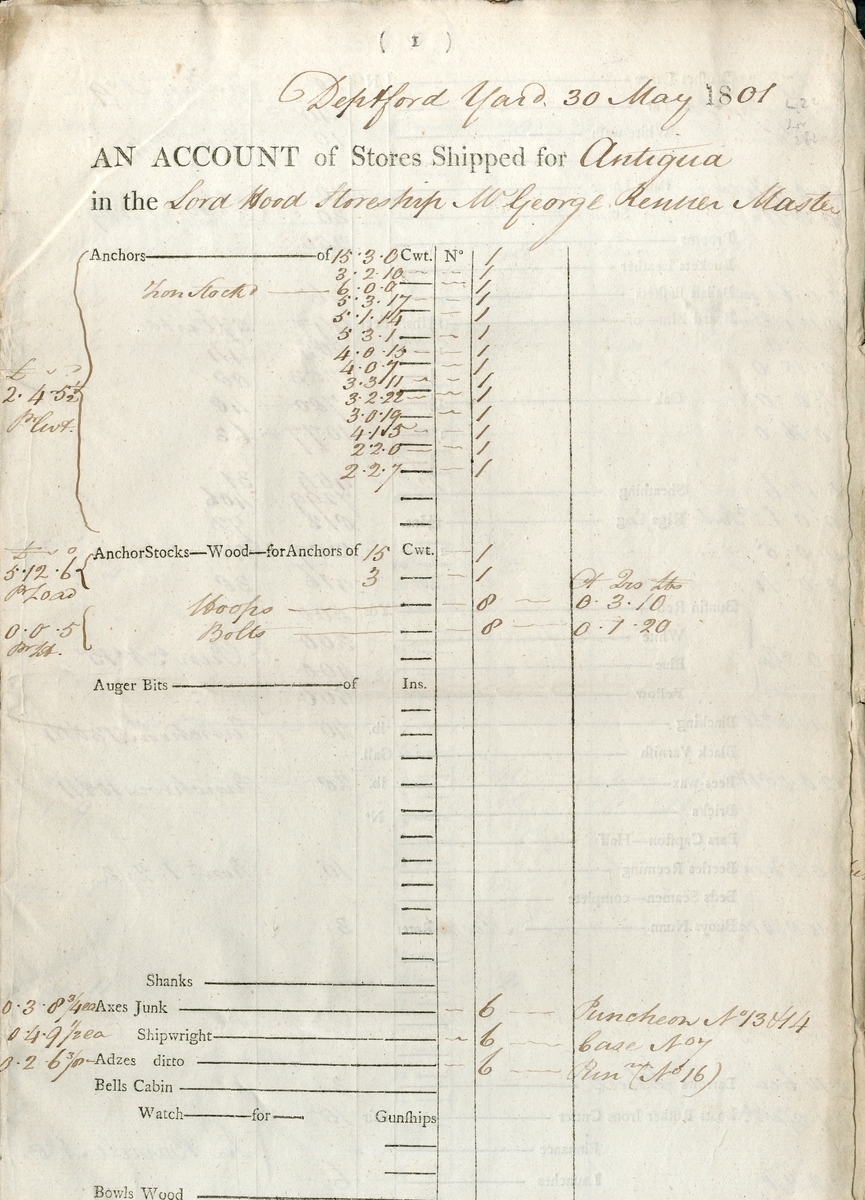 ( 1 )
Deptford Yard. 30 May 1801
AN ACCOUNT of Stores Shipped for Antigua
in the Lord Hood Storeship Mr George Renner Master
Anchors of 15.3.0 Cwt. No 1
3.2.10 1
Iron Stock'd 6.0.0 1
5.3.17 1
5.1.14 1
5.3.1 1
4.0.15 1
4.0.7 1
£ s d
2.4.5½ 3.3.11 1
3.2.22 1
Pr Cwt. 3.0.19 1
4.1.5 1
2.2.0 1
2.2.7 1
£ s d
Anchor Stocks—Wood—for Anchors of 15 Cwt. 1
5.12.6 3 1
Pr Load C Qrs lbs
Hoops 8 0.3.10
0.0.5 Bolts 8 0.1.20
Pr lb.
Auger Bits of Ins.
Shanks
0.3.8¾ ea Axes Junk 6 Puncheon No 13 & 14
0.4.9½ ea Shipwright 6 Case No 7
0.2.6⅜ Adzes ditto 6 Pun (No 16)
Bells Cabin
Watch for Gunſhips
Bowls Wood